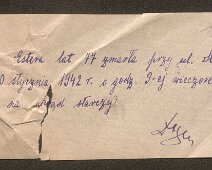 Estera lat 77 zmarła przy ul.
0 stycznia 1942 r. o godz. 9-ej wieczore
na uwiąd starczy?